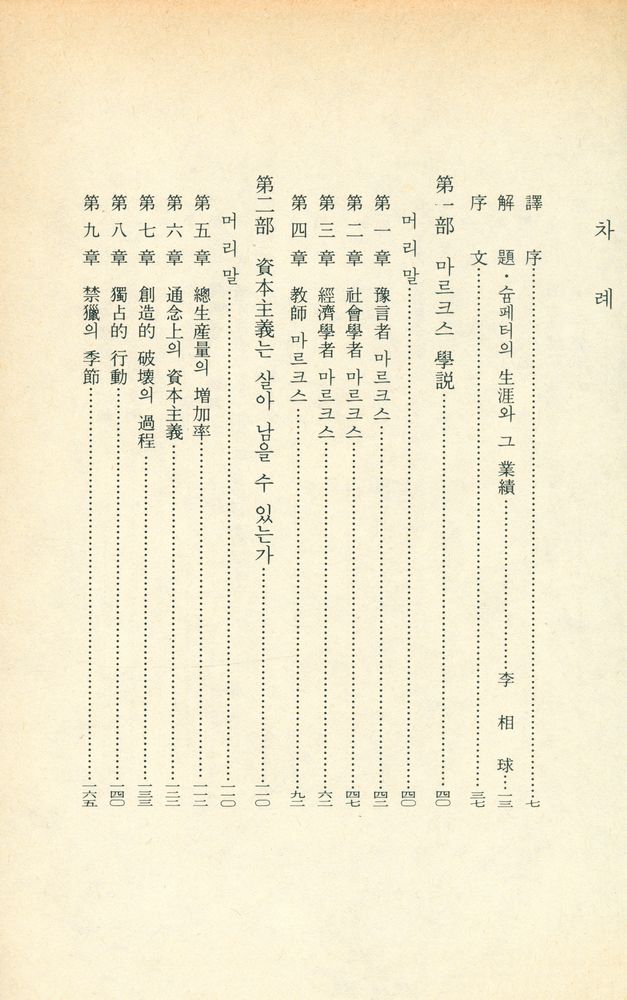 차례
譯序……七
解題·슘페터의 生涯와 그 業績……李相球……一三
序文……三七
第一部 마르크스 學説……四〇
머리말……四〇
第一章 豫言者 마르크스……四二
第二章 社會學者 마르크스……四七
第三章 經濟學者 마르크스……六二
第四章 教師 마르크스……九二
第二部 資本主義는 살아 남을 수 있는가……一一〇
머리말……一一〇
第五章 總生産量의 増加率……一一二
第六章 通念上의 資本主義……一二二
第七章 創造的 破壊의 過程……一三三
第八章 獨占的 行動……一四〇
第九章 禁獵의 季節……一六五